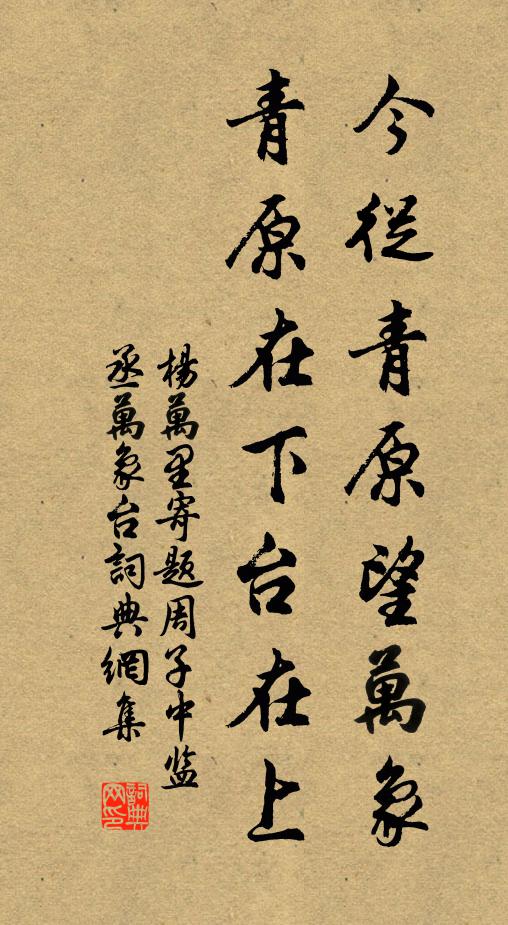 今從青原望萬象
青原在下台在上
楊萬里寄題周子中監
丞萬象台詞典網集
詞典
网印